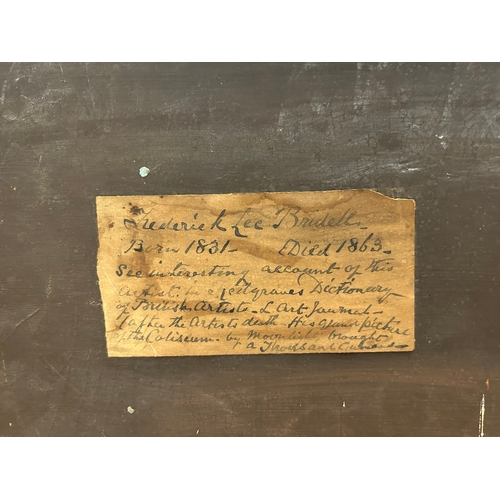 Frederick Lee Bridell
Born 1831 - Died 1863 -
See interesting account of this
artist in Redgraves Dictionary
of British Artists - & Art Journal -
(after the Artists death - His grand picture
of the Coliseum - by Moonlight brought
a Thousand Guineas -